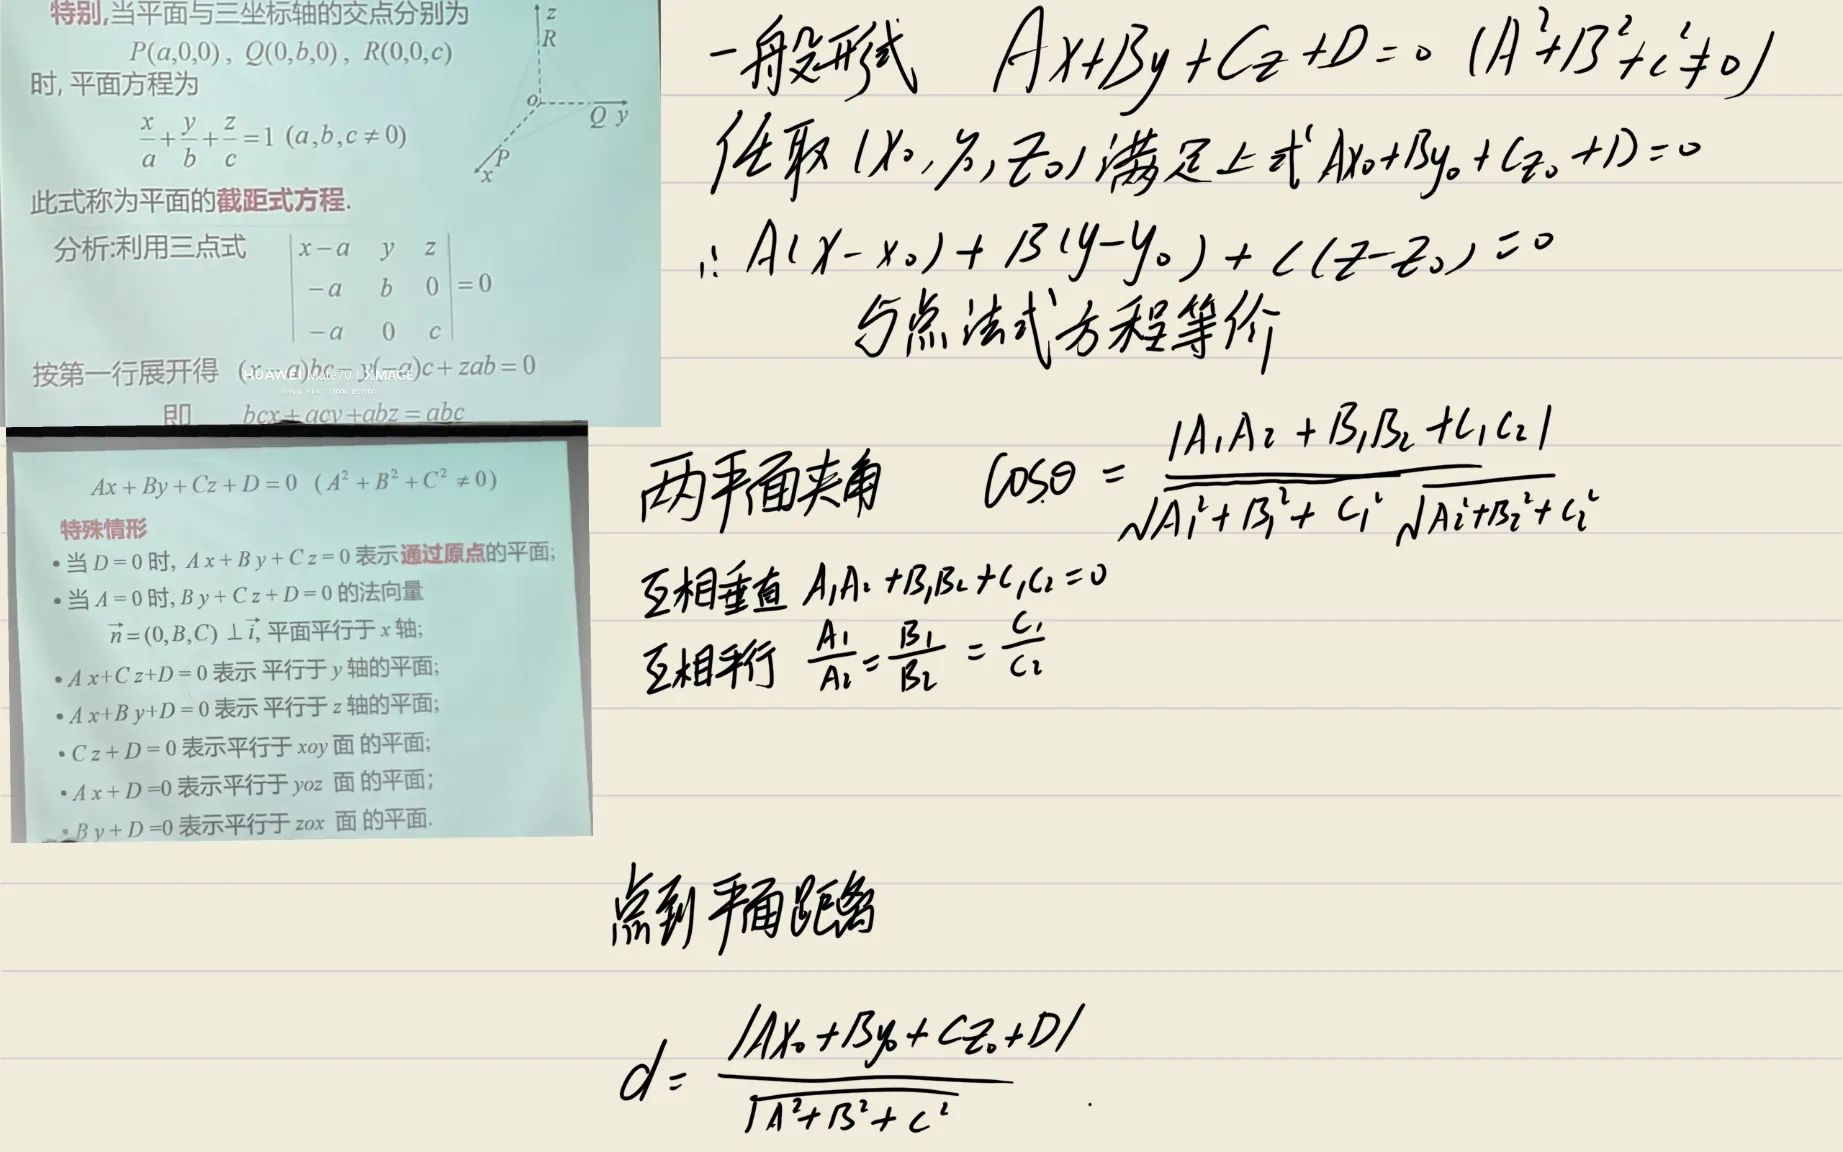 特别,当平面与三坐标轴的交点分别为
P(a,0,0) , Q(0,b,0) , R(0,0,c)
时, 平面方程为
x/a + y/b + z/c = 1 (a,b,c ≠ 0)
z
R
o
Q y
P
x
此式称为平面的截距式方程.
分析:利用三点式
| x−a y z |
| −a b 0 | = 0
| −a 0 c |
按第一行展开得 (x−a)bc − y(−a)c + zab = 0
HUAWEI Mate 70 | XMAGE
即 bcx + acy + abz = abc
Ax + By + Cz + D = 0 ( A² + B² + C² ≠ 0 )
特殊情形
• 当 D = 0 时, A x + B y + C z = 0 表示通过原点的平面;
• 当 A = 0 时, B y + C z + D = 0 的法向量
n⃗ = (0, B, C) ⊥ i⃗, 平面平行于 x 轴;
• A x+C z+D = 0 表示 平行于 y 轴的平面;
• A x+B y+D = 0 表示 平行于 z 轴的平面;
• C z + D = 0 表示平行于 xoy 面 的平面;
• A x + D =0 表示平行于 yoz 面 的平面;
• B y + D =0 表示平行于 zox 面 的平面.
一般形式 Ax+By+Cz+D=0 (A²+B²+C²≠0)
任取 (x₀, y₀, z₀) 满足上式 Ax₀+By₀+Cz₀+D=0
∴ A(x−x₀)+B(y−y₀)+C(z−z₀)=0
与点法式方程等价
两平面夹角 cosθ = |A₁A₂+B₁B₂+C₁C₂| / √A₁²+B₁²+C₁² √A₂²+B₂²+C₂²
互相垂直 A₁A₂+B₁B₂+C₁C₂=0
互相平行 A₁/A₂ = B₁/B₂ = C₁/C₂
点到平面距离
d = |Ax₀+By₀+Cz₀+D| / √A²+B²+C²